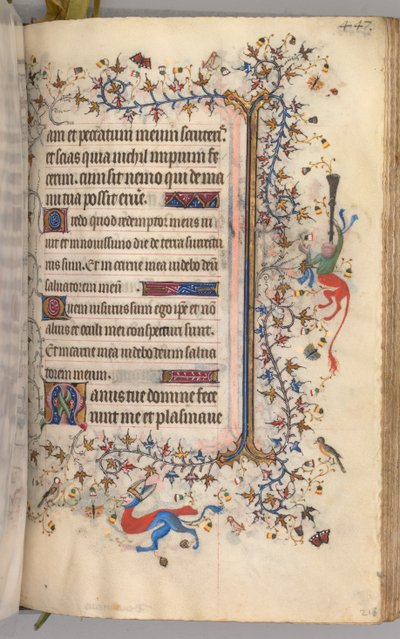 447.
am et peccatum meum scruteris
et scias quia nichil impium fe
cerim. cum sit nemo qui de ma
nu tua possit
redo quod redemptor meus vi
uit et in nouissimo die de terra surrectu
rus sum. Et in carne mea videbo deum
saluatorem meum
Quem visurus sum ego ipse et non
alius et oculi mei conspecturi sunt.
Et in carne mea videbo deum salua
torem meum.
Manus tue domine fece
runt me et plasmaue
218